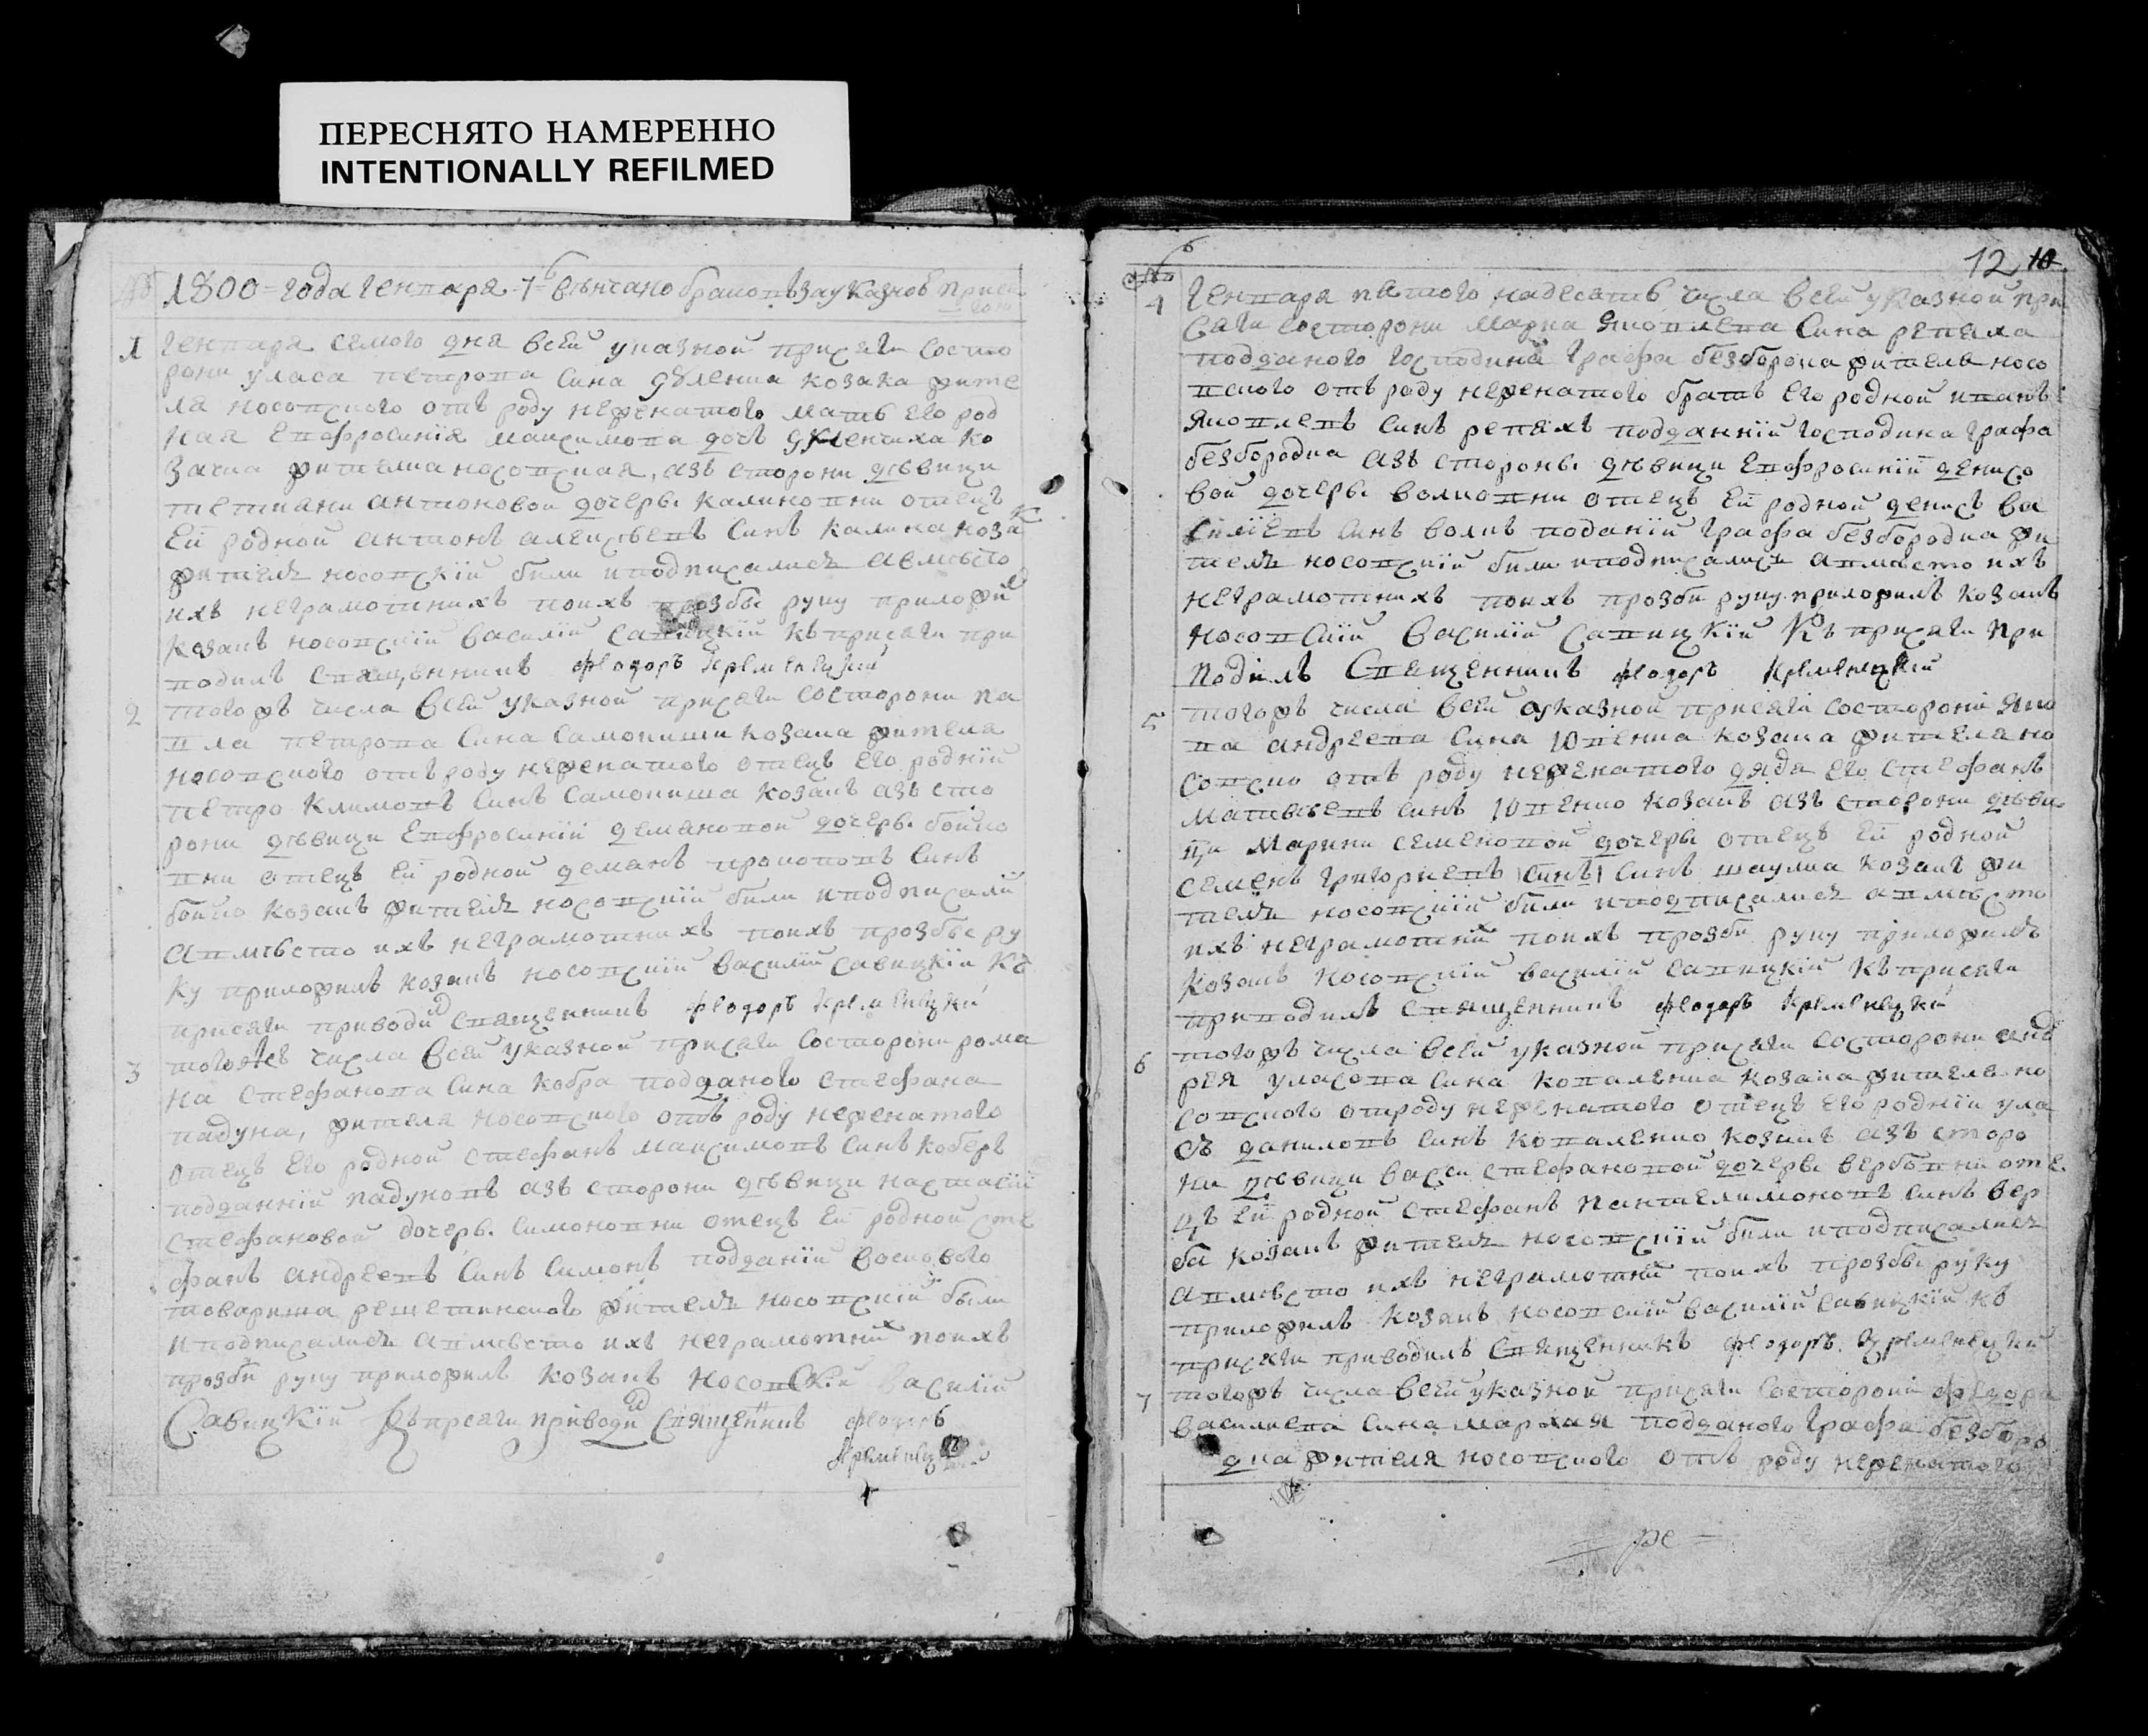 ПЕРЕСНЯТО НАМЕРЕННО
INTENTIONALLY REFILMED
1800 года генваря 7 вѣнчано браковъ за указною присягою
1 генваря семого дня всей указной присяги состо
рони уласа петрова сина козака жите
ля носовского отъ роду неженатого мать его род
ная евфросинія максимова дочъ ко
зачка жителка носовская, азъ сторони дѣвици
тетияни антоновой дочеръ калиновни отецъ
ей родной антонъ алексѣевъ синъ калина козак
жителъ носовскій били иподписалисъ авмѣсто
ихъ неграмотнихъ поихъ прозбѣ руку приложил
козакъ носовскій василій савицкій къ присяги при
водилъ священникъ феодоръ кременецкий
2 тогожъ числа всей указной присяги состорони па
вла петрова сина самокиши козака жителя
носовского отъ роду неженатого отецъ его родній
петро климовъ синъ самокиша козакъ азъ сто
рони дѣвици евфросиній демяновой дочеръ бойко
вни отецъ ей родной демянъ прокоповъ синъ
бойко козакъ жителъ носовскій били иподписали
авмѣсто ихъ неграмотнихъ поихъ прозбѣ ру
ку приложилъ козакъ носовскій василій савицкій къ
присяги приводил священникъ феодоръ кременецкий
3 тогожъ числа всей указной присяги состорони рома
на стефанова сина кобра подданого стефана
падуна, жителя носовского отъ роду неженатого
отецъ его родной стефанъ максимовъ синъ коберъ
подданній падуновъ азъ сторони дѣвици настасіи
стефановой дочеръ симоновни отецъ ей родной сте
фанъ андреевъ синъ симонъ подданій воскового
товариша решетинского жителъ носовскій были
иподписалисъ авмѣсто ихъ неграмотних поихъ
прозби руку приложилъ козакъ носовский василій
Савицкій къ присяги приводил священник феодоръ
кременецкий
12 10
4 генваря пятого надесять числа всей указной при
сяги состорони марка яковлева сина репяха
подданого господина графа безбородка жителя носо
вского отъ роду неженатого братъ его родной иванъ
яковлевъ синъ репяхъ подданній господина графа
безбородка азъ стороны дѣвици евфросиній денисо
вой дочеръ волковни отецъ ей родной денисъ ва
силіевъ синъ волкъ поданій графа безбородка жи
телъ носовскій били иподписалисъ авмѣсто ихъ
неграмотнихъ поихъ прозби руку приложилъ козакъ
носовскій василій савицкій Къ присяги при
водилъ Священникъ феодоръ кременецкий
5 тогожъ числа всей указной присяги состорони яко
ва андреева сина юпенка козака жителя но
совско отъ роду неженатого дядя его стефанъ
матвѣевъ синъ юпенко козакъ азъ сторони дѣви
ци марини семеновой дочеръ отецъ ей родной
семенъ григориевъ синъ синъ шаулка козакъ жи
телъ носовскій били иподписалисъ авмѣсто
ихъ неграмотних поихъ прозби руку приложилъ
козакъ носовскій василій савицкій къ присяги
приводилъ священникъ феодоръ кременецкий
6 тогожъ числа всей указной присяги состорони анд
рея уласова сина коваленка козака жителя но
совского отроду неженатого отецъ его родній ула
съ даниловъ синъ коваленко козакъ азъ сторо
ни дѣвици васси стефановой дочеръ вербовни оте
цъ ей родной стефанъ пантелимоновъ синъ вер
ба козакъ жителъ носовскій били иподписалисъ
авмѣсто ихъ неграмотних поихъ прозбѣ руку
приложилъ козакъ носовскій василій савицкій къ
присяги приводилъ священникъ феодоръ кременецкий
7 тогожъ числа всей указной присяги состорони федора
василиева сина подданого графа безборо
дка жителя носовского отъ роду неженатого